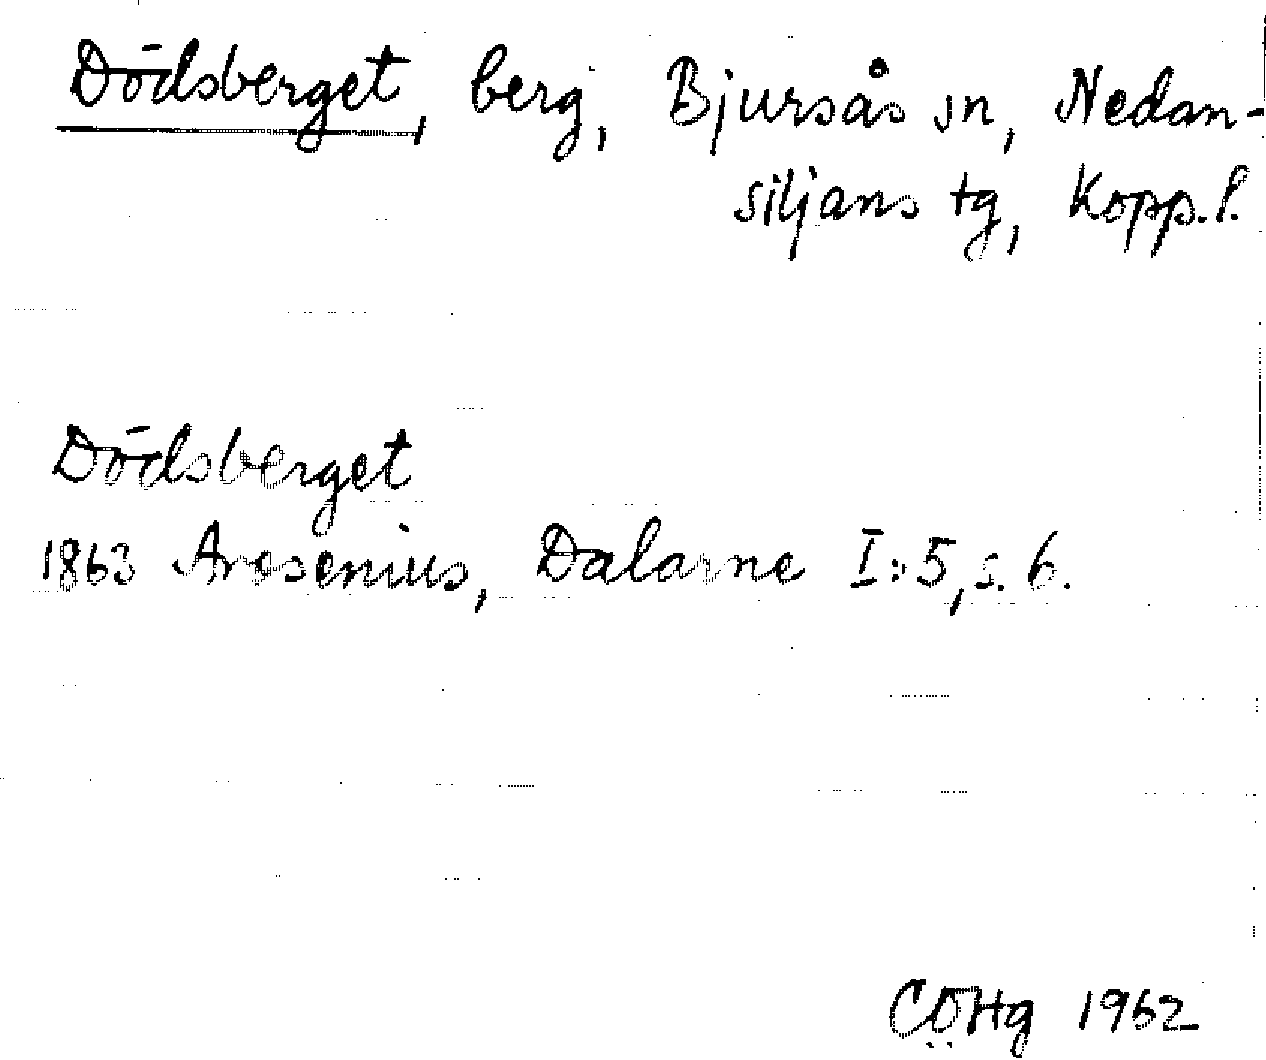 Dödsberget, berg, Bjursås sn, Nedan-
siljans tg, Kopp. l.
Dödsberget
1863 Arosenius, Dalarne I:5, s. 6.
CÖHg 1962